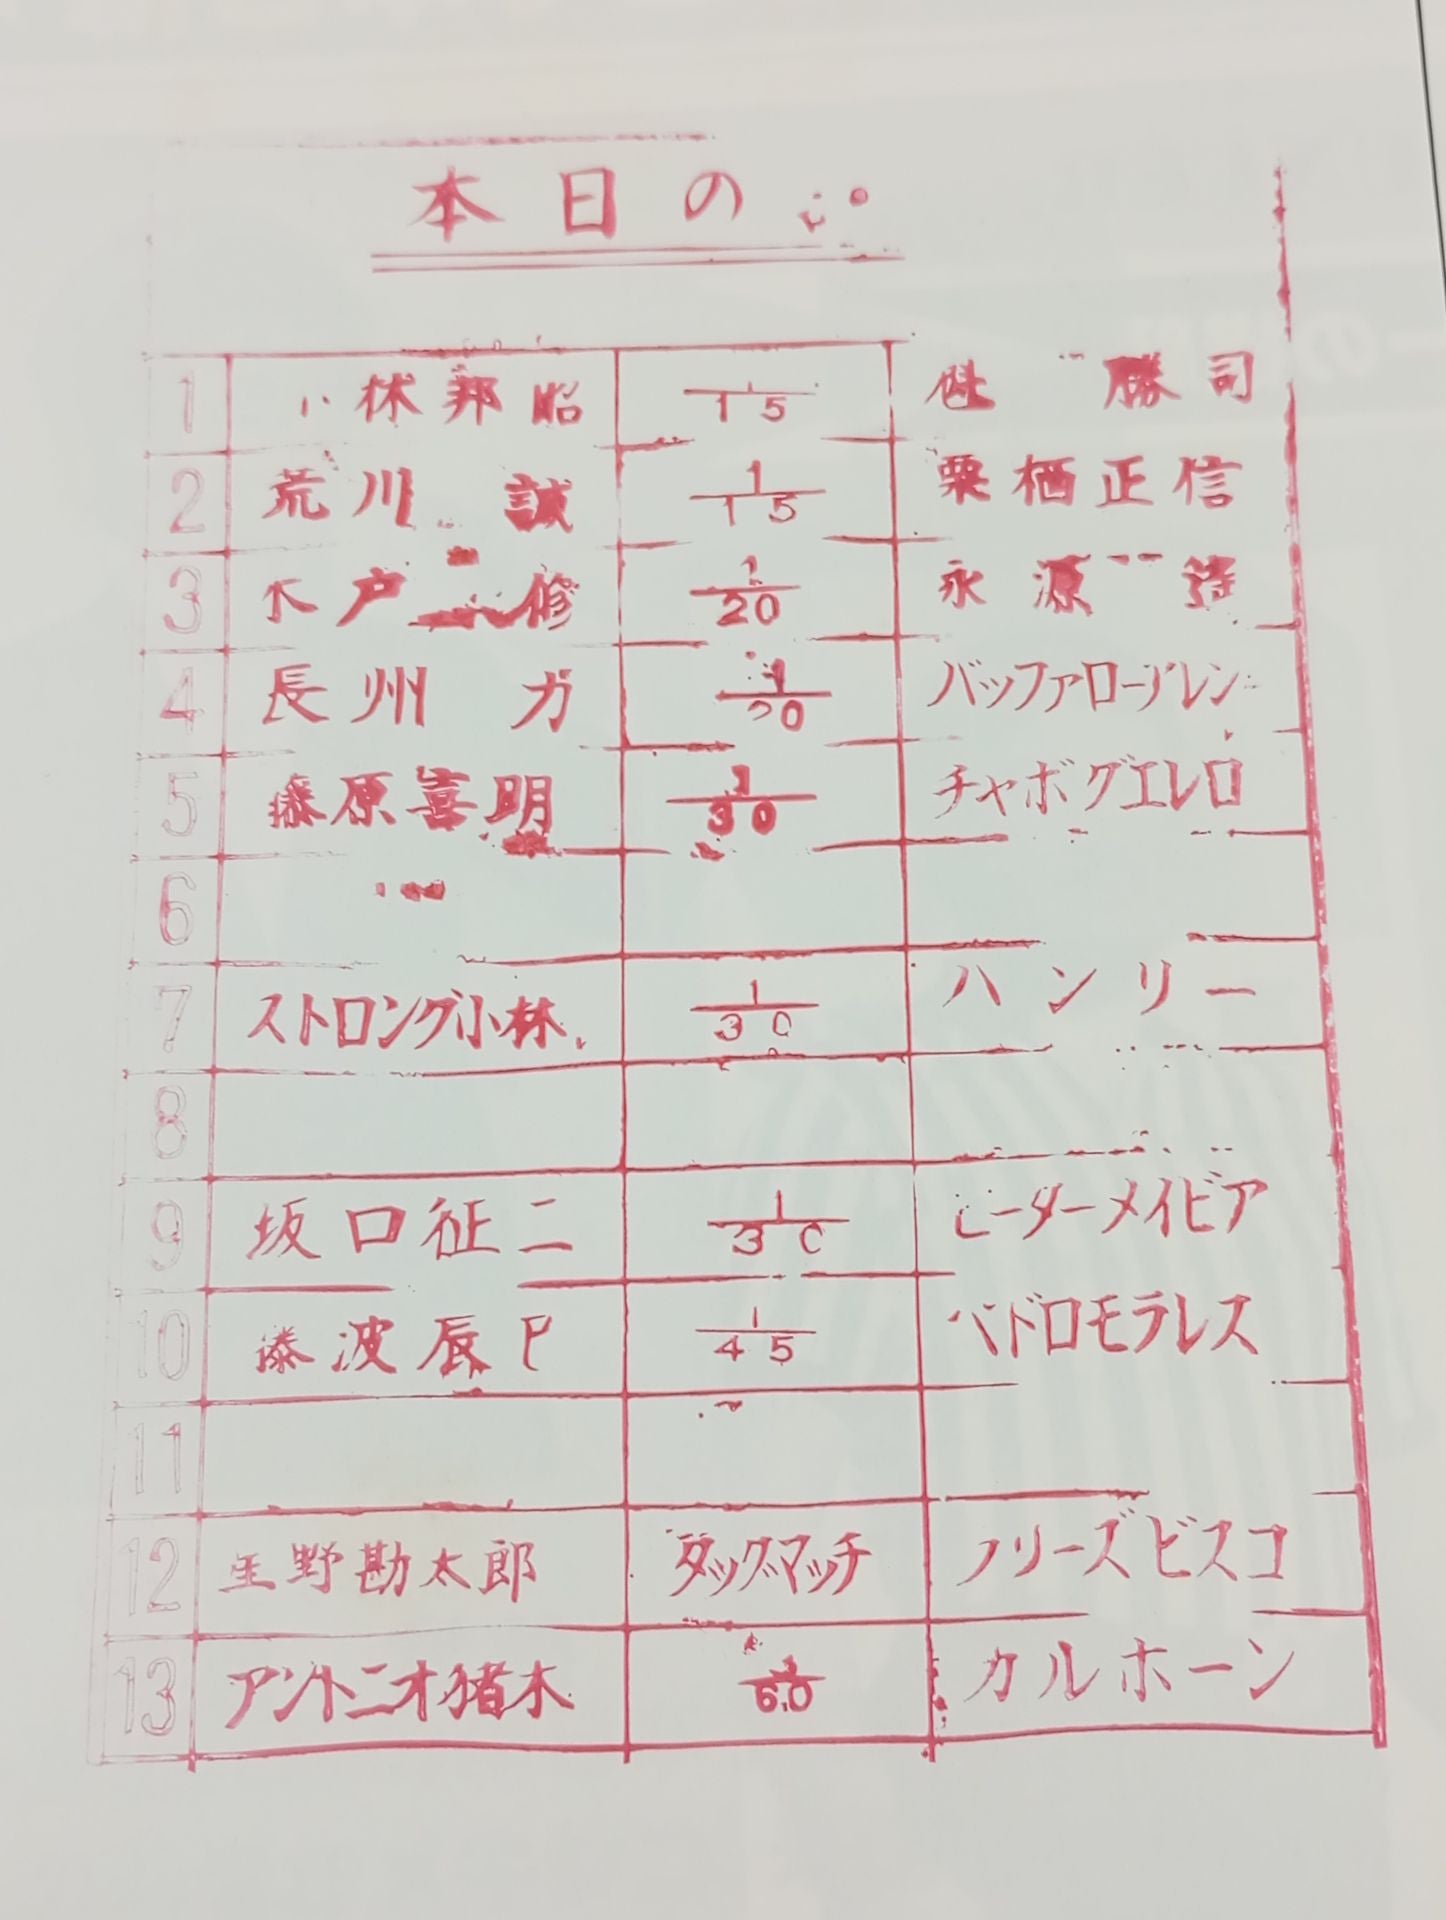 本日の
1 小林邦昭 1/15 魁勝司
2 荒川誠 1/15 栗栖正信
3 木戸修 1/20 永源遙
4 長州力 1/20 バッファローアレン
5 藤原喜明 1/30 チャボゲエレロ
6
7 ストロング小林 1/30 ハンリー
8
9 坂口征二 1/30 ピーターメイビア
10 藤波辰巳 1/45 ペドロモラレス
11
12 星野勘太郎 タッグマッチ フリーズビスコ
13 アントニオ猪木 1/60 カルホーン